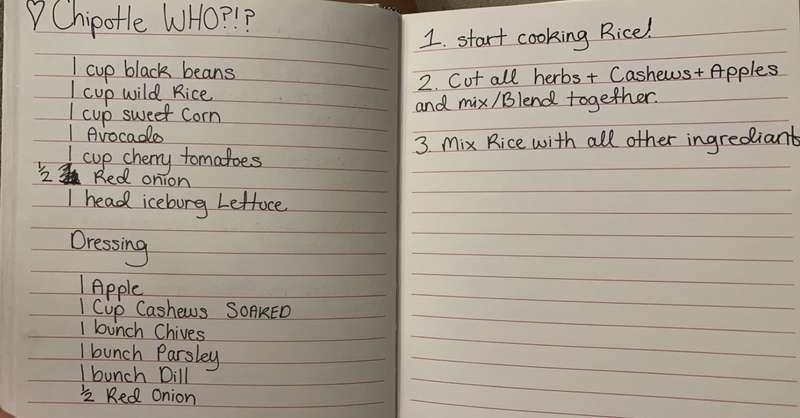 ♡ Chipotle WHO?!?
1 cup black beans
1 cup wild Rice
1 cup sweet Corn
1 Avocado
1 cup cherry tomatoes
½ Red onion
1 head iceburg Lettuce
Dressing
1 Apple
1 Cup Cashews SOAKED
1 bunch Chives
1 bunch Parsley
1 bunch Dill
½ Red Onion
1. start cooking Rice!
2. Cut all herbs + Cashews + Apples
and mix/Blend together.
3. Mix Rice with all other ingrediants